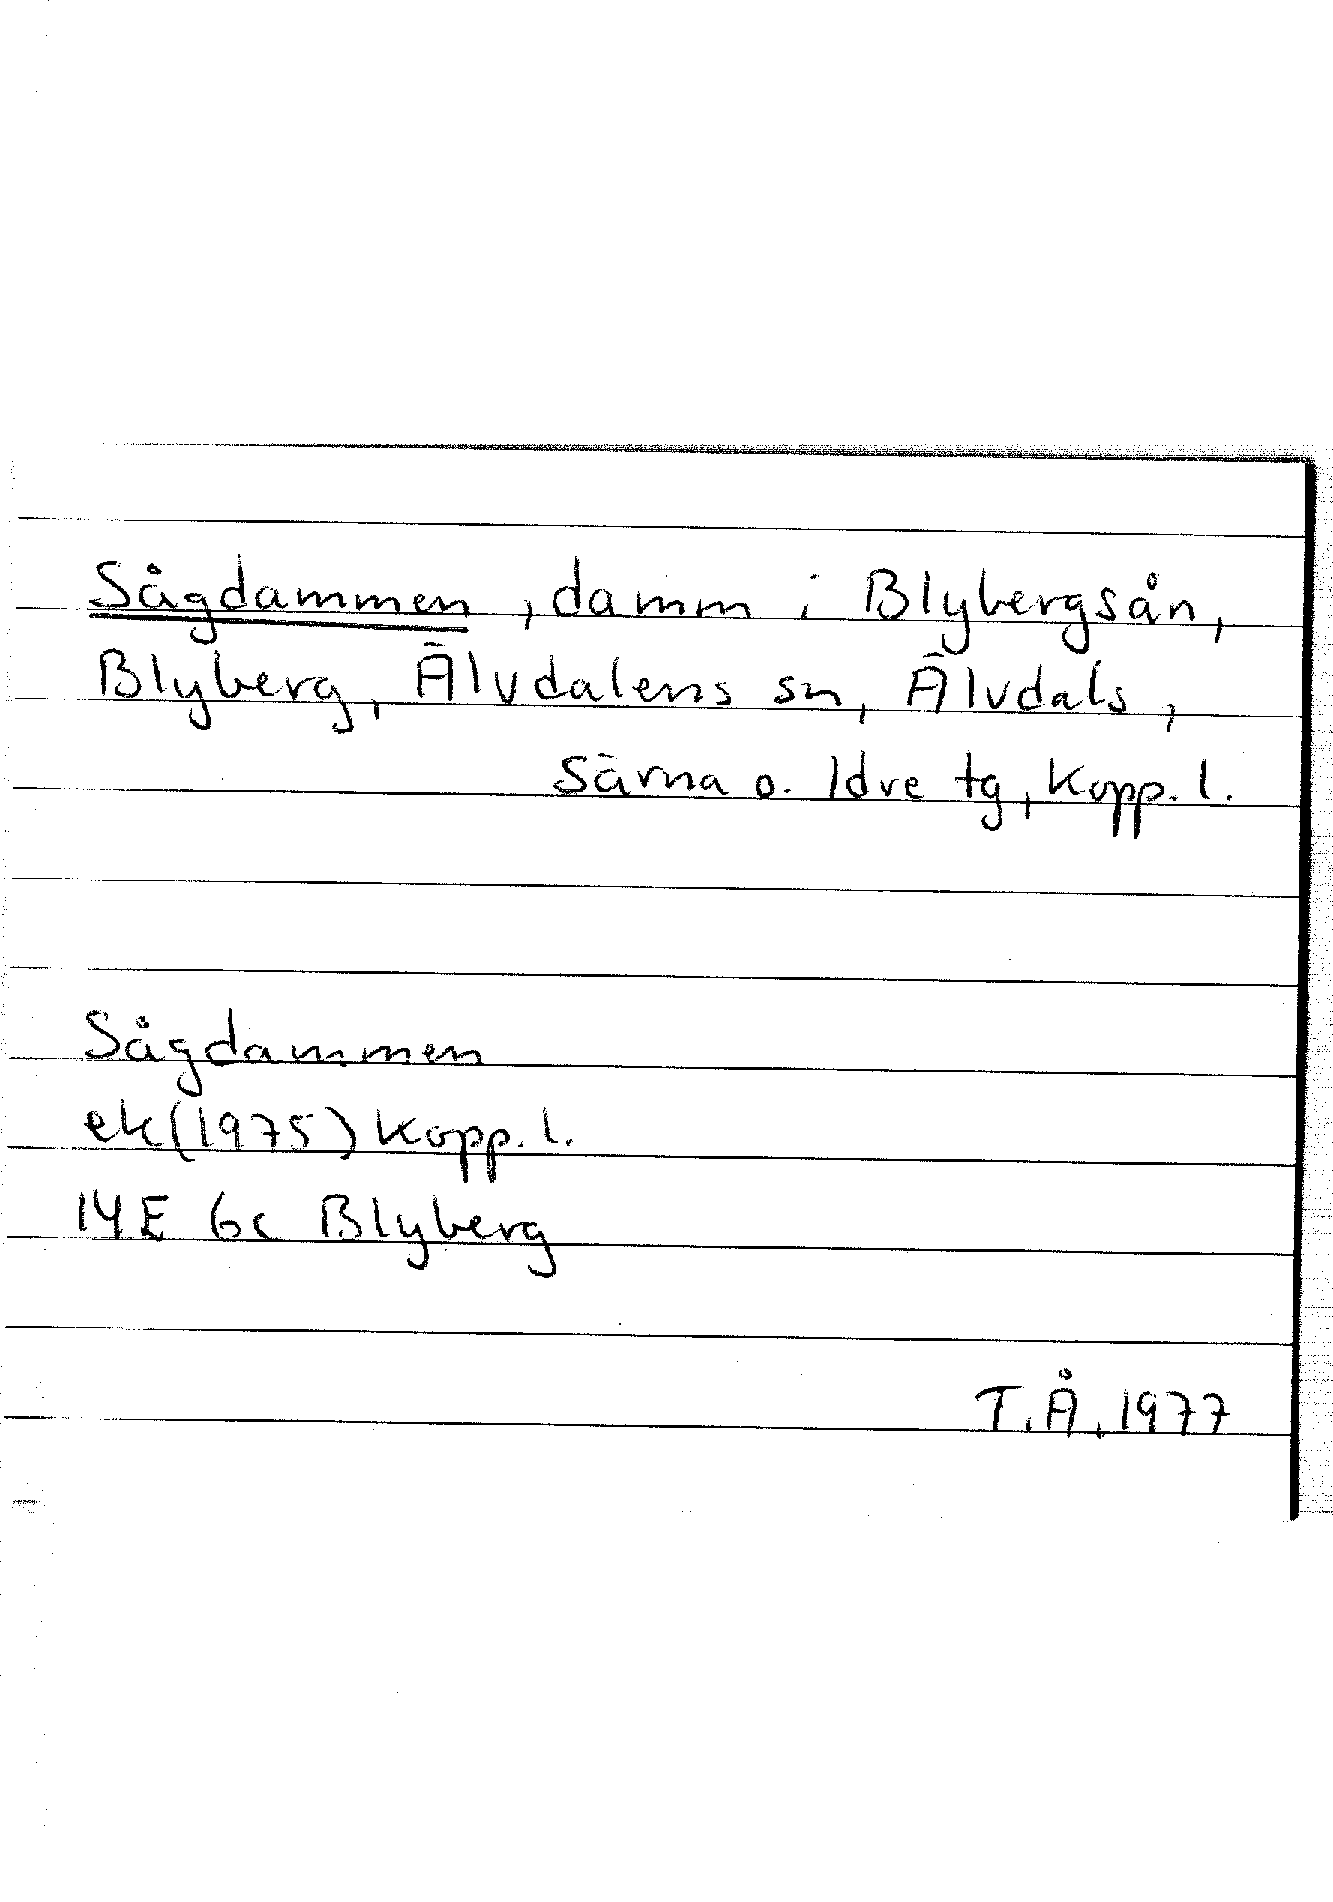 Sågdammen, damm i Blybergsån,
Blyberg, Älvdalens sn, Älvdals,
Särna o. Idre tg, Kopp. l.
Sågdammen
ek (1975) Kopp. l.
14E 6c Blyberg
T.Å. 1977